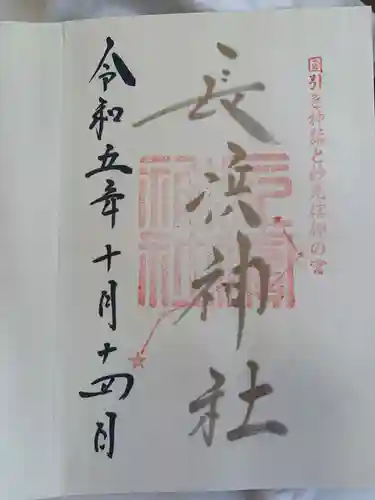 国引き神話と妙見信仰の宮
長浜神社
令和五年十月十四日